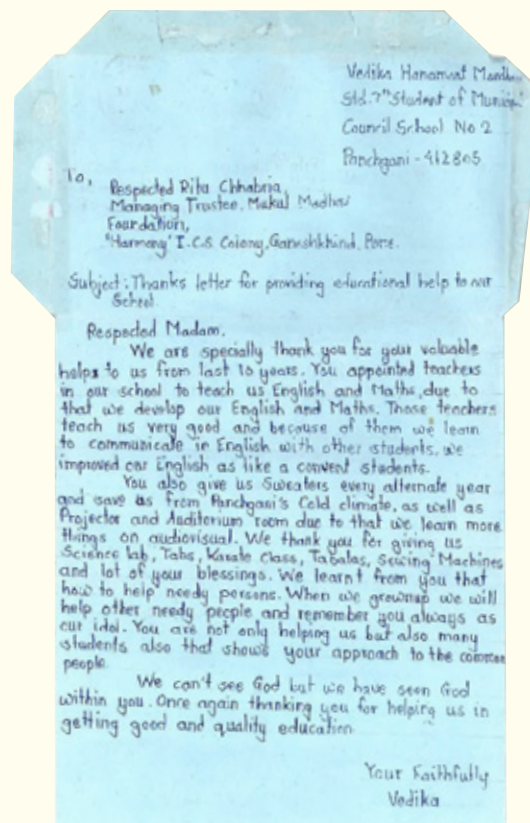 Vedika Hanamant
Std. 7th Student of
Council School No 2
Panchgani - 412805
To,
Respected Rita Chhabria,
Managing Trustee, Mukul Madhav
Foundation,
"Harmony" I.C.S Colony, Ganeshkhind,
Subject: Thanks letter for providing educational help to our
School.
Respected Madam.
We are specially thank you for your valuable
helps to us from last 10 years. You appointed teachers
in our school to teach us English and Maths, due to
that we develop our English and Maths. Those teachers
teach us very good and because of them we learn
to communicate in English with other students, we
improved our English as like a convent students.
You also give us Sweaters every alternate year
and save us from Panchgani's Cold climate, as well as
Projector and Auditorium room due to that we learn more
things on audiovisual. We thank you for giving us
Science lab, Tabs, Karate Class, Tabalas, Sewing Machines
and lot of your blessings. We learnt from you that
how to help needy persons. When we grownup we will
help other needy people and remember you always as
our idol. You are not only helping us but also many
students also that shows your approach to the common
people.
We can't see God but we have seen God
within you. Once again thanking you for helping us in
getting good and quality education
Your Faithfully
Vedika